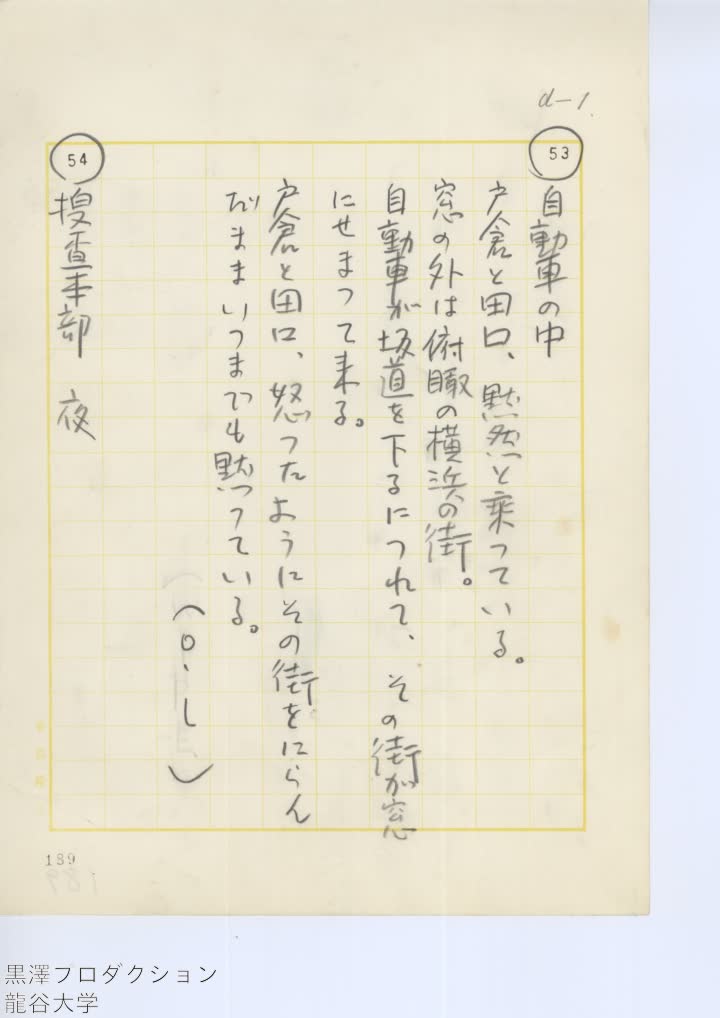 d-1.
53
自動車の中
戸倉と田口、黙然と乗つている。
窓の外は俯瞰の横浜の街。
自動車が坂道を下るにつれて、その街が窓
にせまつて来る。
戸倉と田口、怒つたようにその街をにらん
だまゝいつまでも黙つている。
(O.L)
54
捜査本部 夜
189
黒澤プロダクション
龍谷大学